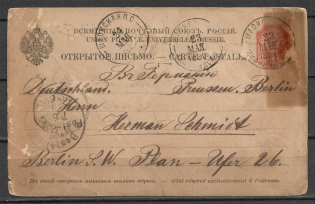 ВСЕМІРНЫЙ ПОЧТОВЫЙ СОЮЗЪ. РОССІЯ.
UNION POSTALE UNIVERSELLE. RUSSIE.
ОТКРЫТОЕ ПИСЬМО. — CARTE POSTALE.
Въ Германии
Deutschland. Preussen. Berlin
Herrn
Herman Schmidt
Berlin S.W. Plan-Ufer 26.
На этой сторонѣ пишется только адресъ. — Côté réservé exclusivement à l'adresse.
23
МАЯ